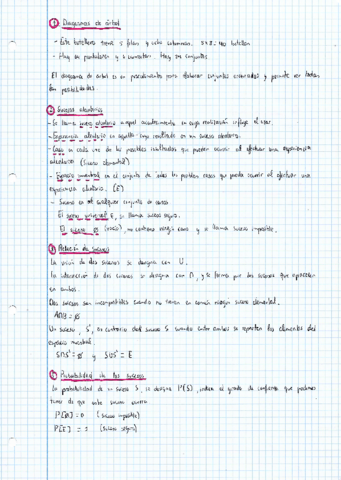 1 Diagramas de árbol
- Este botellero tiene 5 filas y ocho columnas. 5x8=40 botellas
- Hay 5 pantalones y 4 camisetas. Hay 20 conjuntos
El diagrama de árbol es un procedimiento para elaborar conjuntos ordenados y permite ver todas
las posibilidades.
2 Sucesos aleatorios
- Se llama suceso aleatorio a aquel acontecimiento en cuya realización influye el azar.
- Experiencia aleatoria es aquella cuyo resultado es un suceso aleatorio.
- Caso es cada uno de los posibles resultados que pueden ocurrir al efectuar una experiencia
aleatoria (suceso elemental)
- Espacio muestral es el conjunto de todos los posibles casos que pueda ocurrir al efectuar una
experiencia aleatoria. (E)
- Suceso es cualquier conjunto de casos
El suceso universal E, se llama suceso seguro.
El suceso ∅ (vacío), no contiene ningún caso y se llama suceso imposible.
3 Relación de sucesos
La unión de dos sucesos se designa con U.
La intersección de dos sucesos se designa con ∩, y se forma por dos sucesos que aparecen
en ambos.
Dos sucesos son incompatibles cuando no tienen en común ningún suceso elemental.
A∩B=∅
Un suceso, S', es contrario del suceso S cuando entre ambos se reparten los elementos del
espacio muestral.
S∩S'=∅ y S∪S'=E
Probabilidad de los sucesos
La probabilidad de un suceso S, se designa P[S], indica el grado de confianza que podemos
tener de que este suceso ocurra
P[∅]=0 (suceso imposible)
P[E]=1 (suceso seguro)